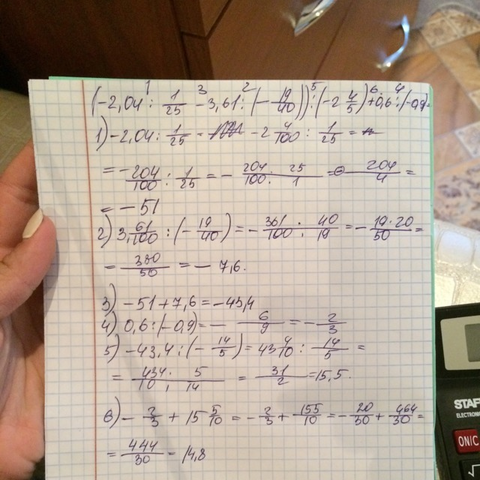 (-2,04 : 1/25 - 3,61 : (-19/40)) : (-2 4/5) + 0,6 : (-0,9
1) -2,04 : 1/25 = -2 4/100 : 1/25 =
= -204/100 : 1/25 = - 204/100 · 25/1 = 204/4 =
= -51
2) 3 61/100 : (-19/40) = - 361/100 · 40/19 = - 19·20/50 =
= 380/50 = - 7,6.
3) -51 + 7,6 = -43,4
4) 0,6 : (-0,9) = - 6/9 = - 2/3
5) -43,4 : (-14/5) = 43 4/10 : 14/5 =
= 434/10 · 5/14 = 31/2 = 15,5.
6) - 2/3 + 15 5/10 = - 2/3 + 155/10 = - 20/30 + 464/30 =
= 444/30 = 14,8
STAF
ELECTRON
ON/C